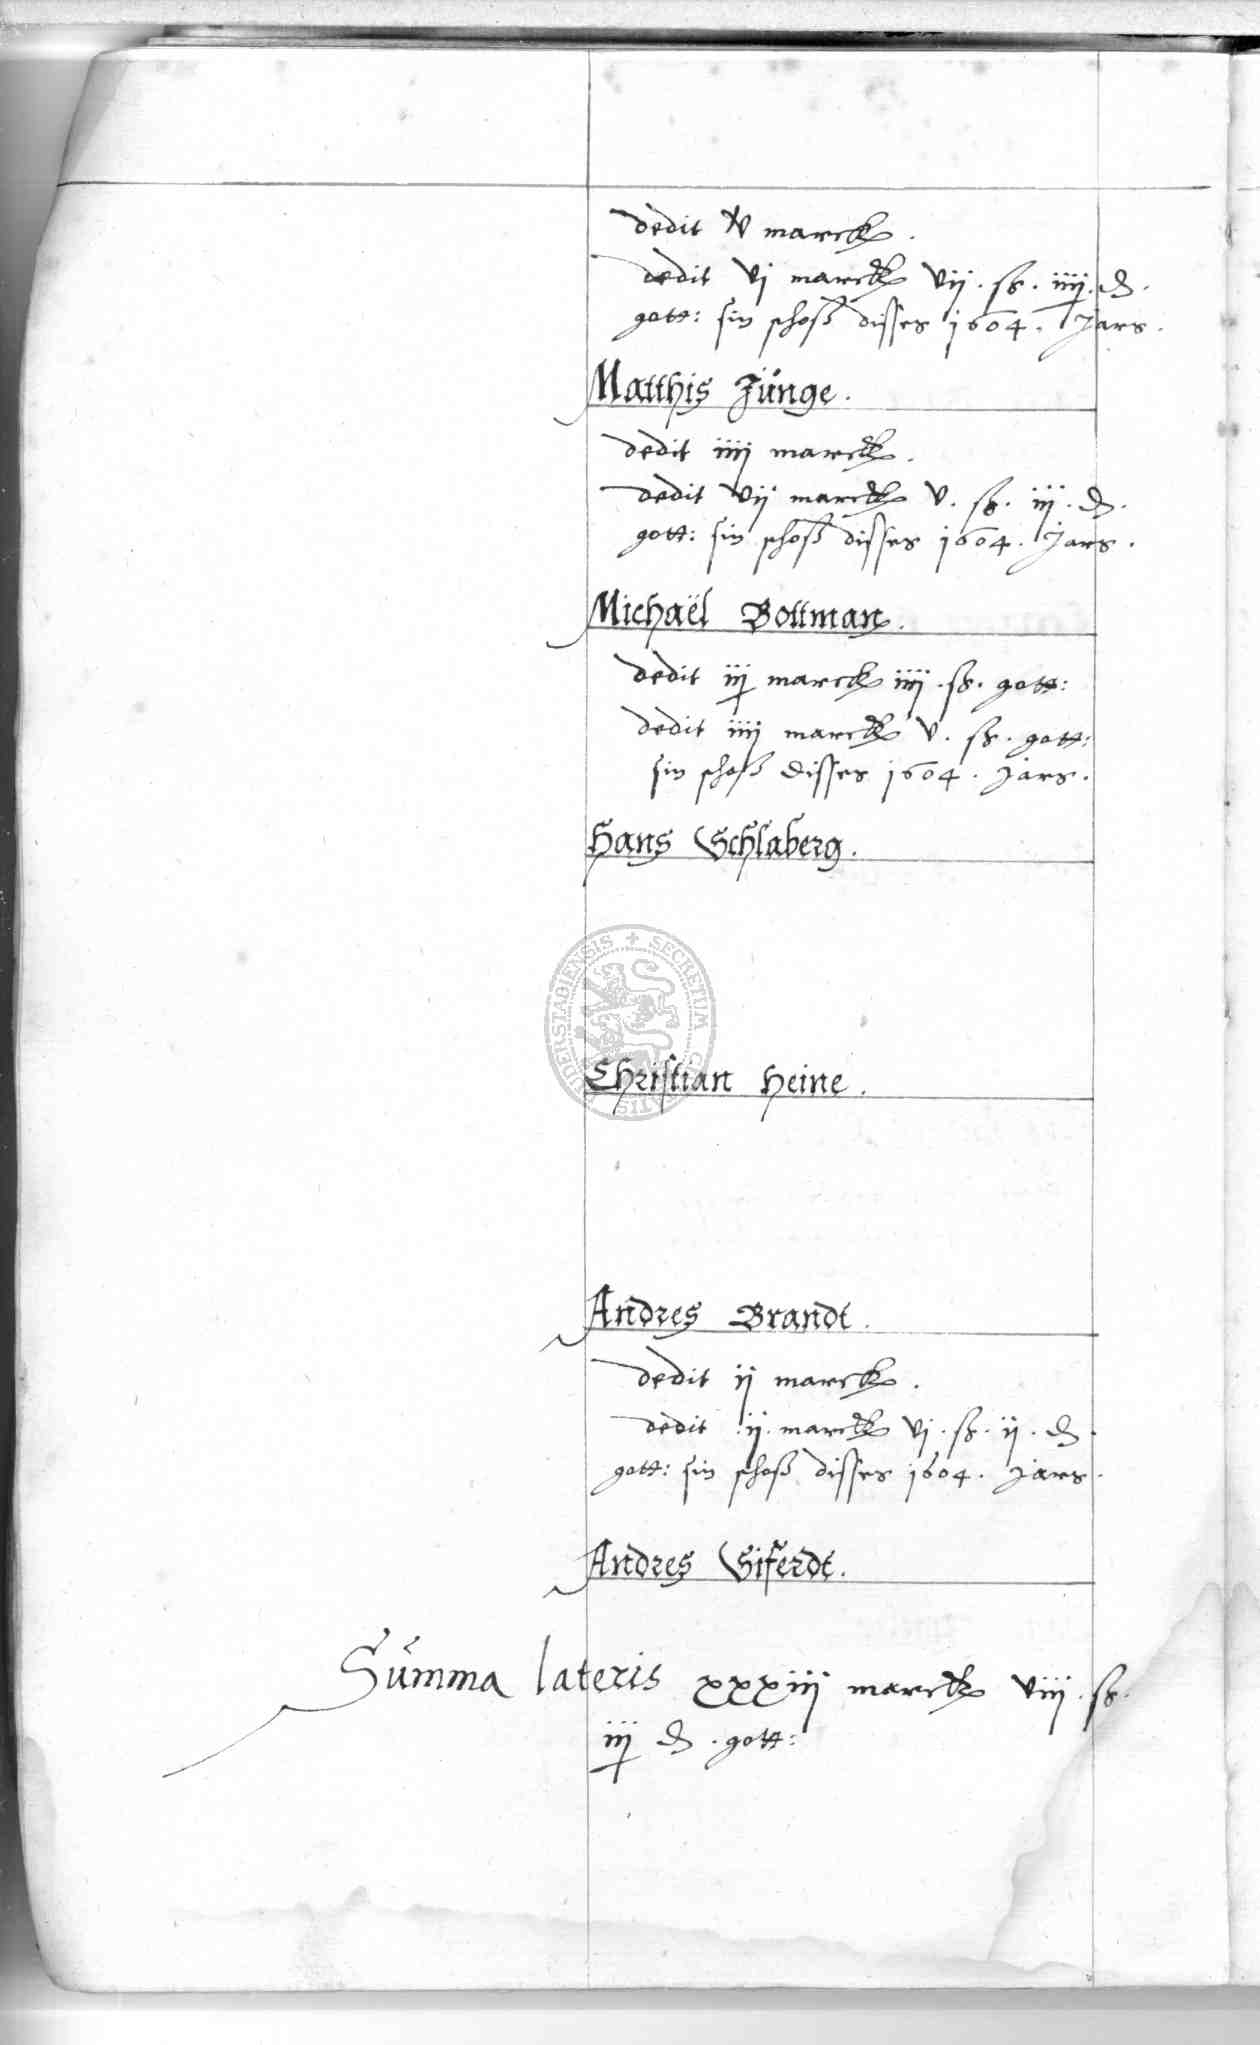 dedit v marck.
dedit vj marck vij. ß. iiij. ₰.
gott: sin schoß disses 1604. Jars.
Matthis Jünge.
dedit iiij marck.
dedit vij marck v. ß. iij. ₰.
gott: sin schoß disses 1604. Jars.
Michaël Bottman.
dedit iij marck iiij. ß. gott:
dedit iiij marck v. ß. gott:
sin schoß disses 1604. Jars.
Hans Schlaberg.
SECRETUM CIVITATIS DUDERSTADIENSIS +
Christian Heine.
Andres Brandt.
dedit ij marck.
dedit .ij. marck vj. ß. ij. ₰.
gott: sin schoß disses 1604. Jars.
Andres Siferdt.
Sümma lateris xxxiij marck viij. ß.
iij ₰. gott: